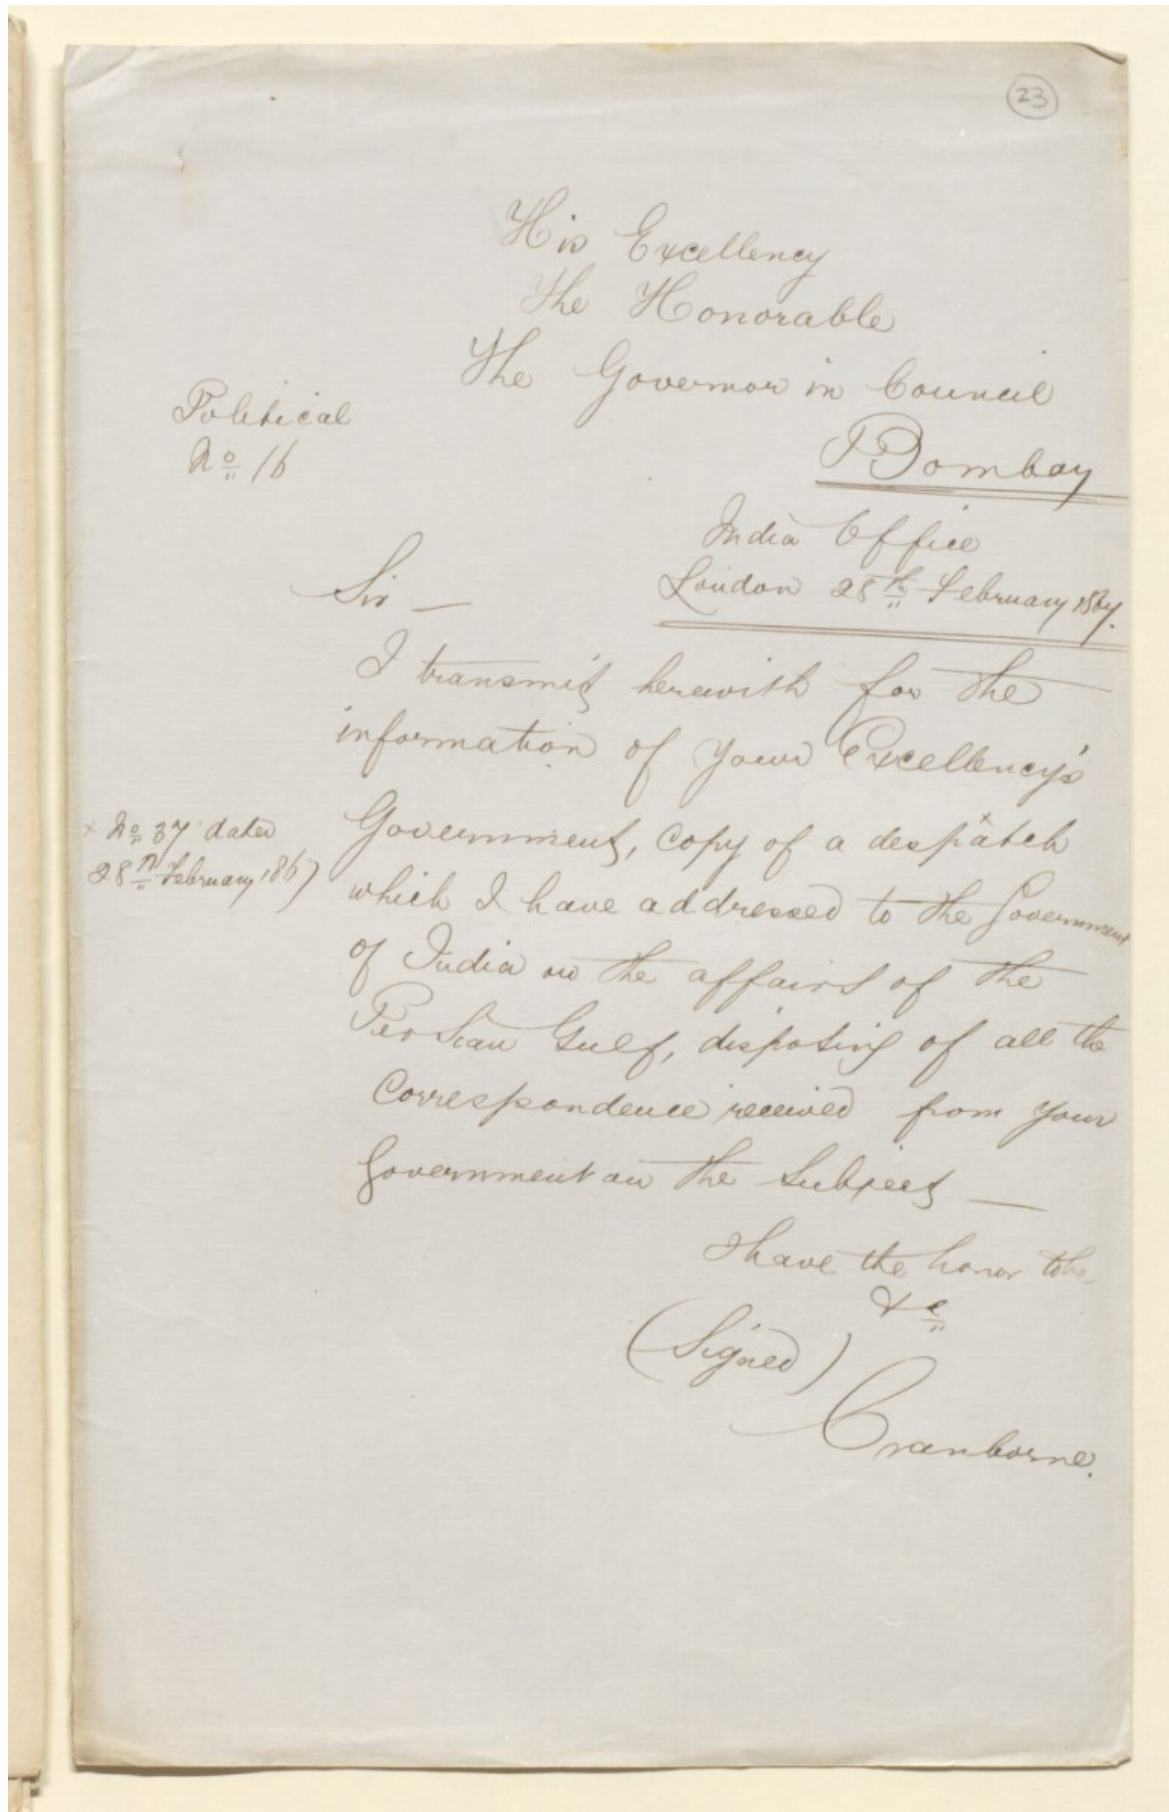 23
His Excellency
The Honorable
The Governor in Council
Political
No 16
Bombay
India Office
London 28th February 1867.
Sir —
I transmit herewith for the
information of your Excellency's
x No 37 dated
28th February 1867
Government, copy of a despatch x
which I have addressed to the Government
of India on the affairs of the
Persian Gulf, disposing of all the
Correspondence received from your
Government on the Subject —
I have the honor to be
&c
(Signed)
Cranborne.